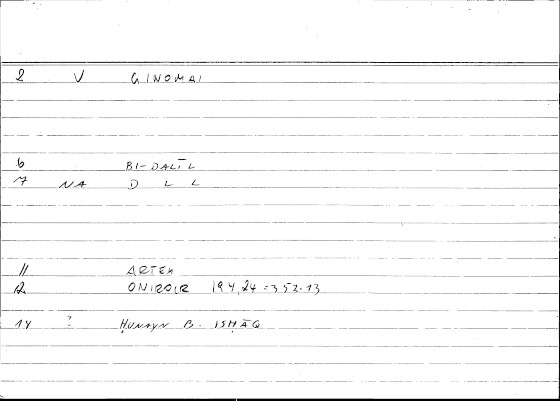 2 V GINOMAI
6 BI-DALĪL
7 NA D L L
11 ARTEM
12 ONIROCR 194,24 = 352.13
14 ? ḤUNAYN B. ISḤĀQ